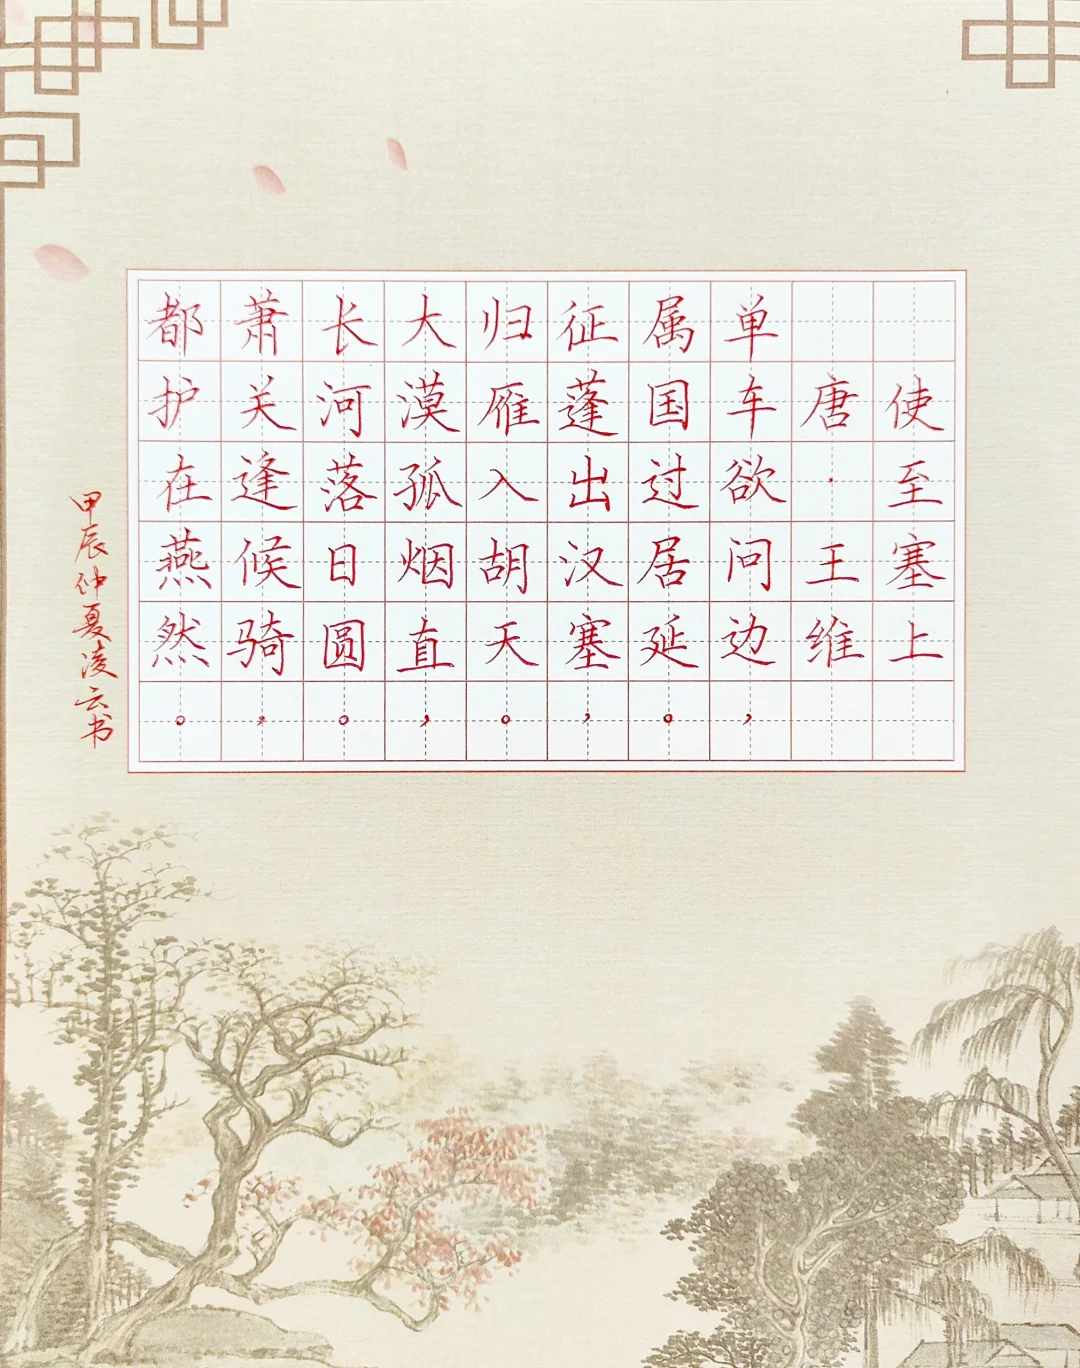 使至塞上
唐·王维
单车欲问边，
属国过居延。
征蓬出汉塞，
归雁入胡天。
大漠孤烟直，
长河落日圆。
萧关逢候骑，
都护在燕然。
甲辰仲夏凌云书